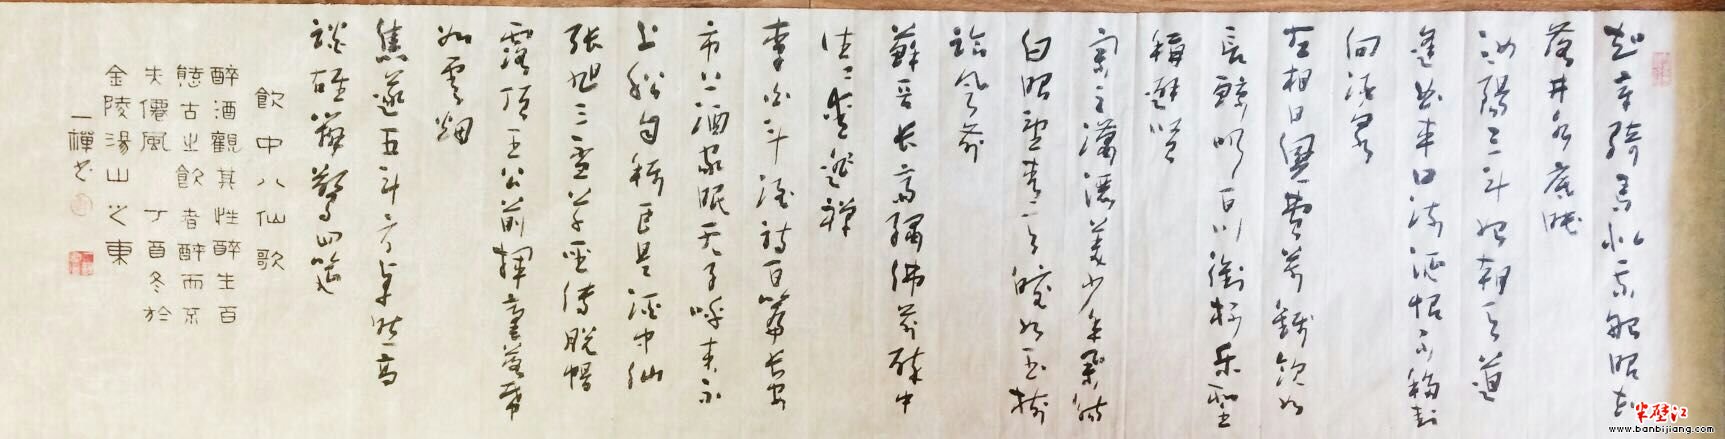 知章騎馬似乘船眼花
落井水底眠
汝陽三斗始朝天道
逢麴車口流涎恨不移封
向酒泉
左相日興費萬錢飲如
長鯨吸百川銜杯樂聖
稱避賢
宗之瀟灑美少年舉觴
白眼望青天皎如玉樹
臨風前
蘇晉長齋繡佛前醉中
往往愛逃禪
李白一斗酒詩百篇長安
市上酒家眠天子呼來不
上船自稱臣是酒中仙
張旭三杯草聖傳脫帽
露頂王公前揮毫落紙
如雲煙
焦遂五斗方卓然高
談雄辯驚四筵
飲中八仙歌
醉酒觀其性醉生百
態古之飲者醉而不
失僊風 丁酉冬於
金陵湯山之東
一禪書
半壁江
www.banbijiang.com